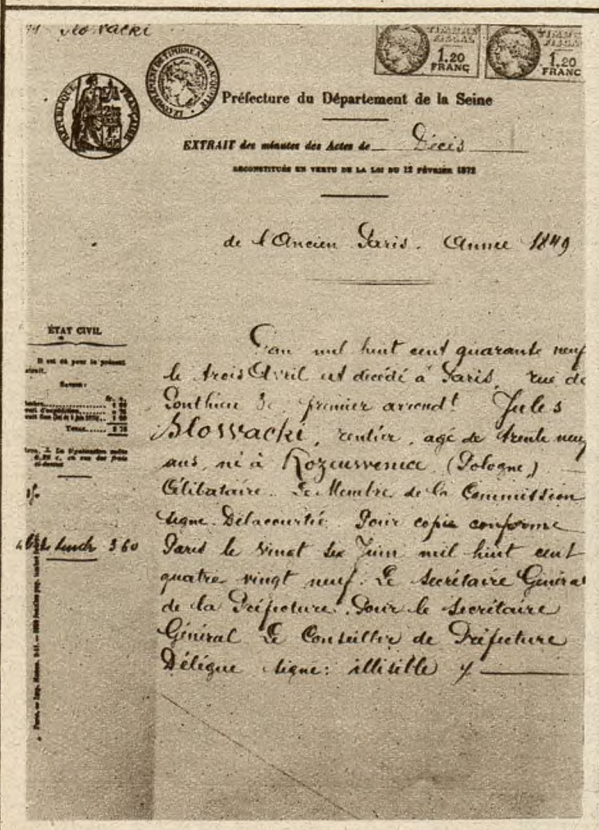 Slowacki
TIMBRE FISCAL 1.20 FRANC
TIMBRE FISCAL 1.20 FRANC
RÉPUBLIQUE FRANÇAISE
Préfecture du Département de la Seine
EXTRAIT des minutes des Actes de Décès
RECONSTITUÉS EN VERTU DE LA LOI DU 12 FÉVRIER 1872
de l'Ancien Paris. Année 1849
ÉTAT CIVIL
Il est dû pour le présent
extrait.
Savoir:
TOTAL
L'an mil huit cent quarante neuf
le trois Avril est décédé à Paris, rue de
Ponthieu 30 premier arrondt Jules
Slowacki, rentier, agé de trente neuf
ans, né à Kozeuwenice, (Pologne)
Célibataire. Le Membre de la Commission
signé: Délacourtié. Pour copie conforme
Paris le vingt six Juin mil huit cent
quatre vingt neuf. Le Secrétaire Général
de la Préfecture. Pour le Secrétaire
Général Le Conseiller de Préfecture
Délégué signé: illisible
3 60